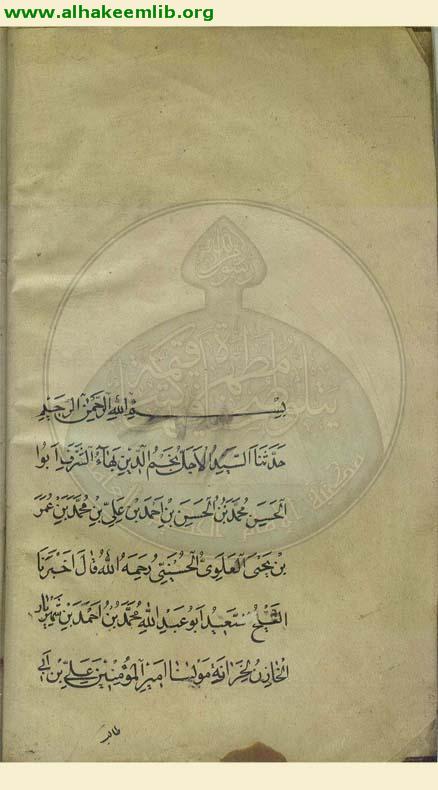 www.alhakeemlib.org
بسم الله الرحمن الرحيم
حدثنا السيد الاجل نجم الدين بهاء الشرف ابوا
الحسن محمد بن الحسن بن احمد بن علي بن محمد بن عمر
بن يحيى العلوي الحسيني رحمه الله قال اخبرنا
الشيخ سعيد ابو عبد الله محمد بن احمد بن شهريار
الخازن لخزانة مولانا امير المؤمنين علي بن ابي
طالب